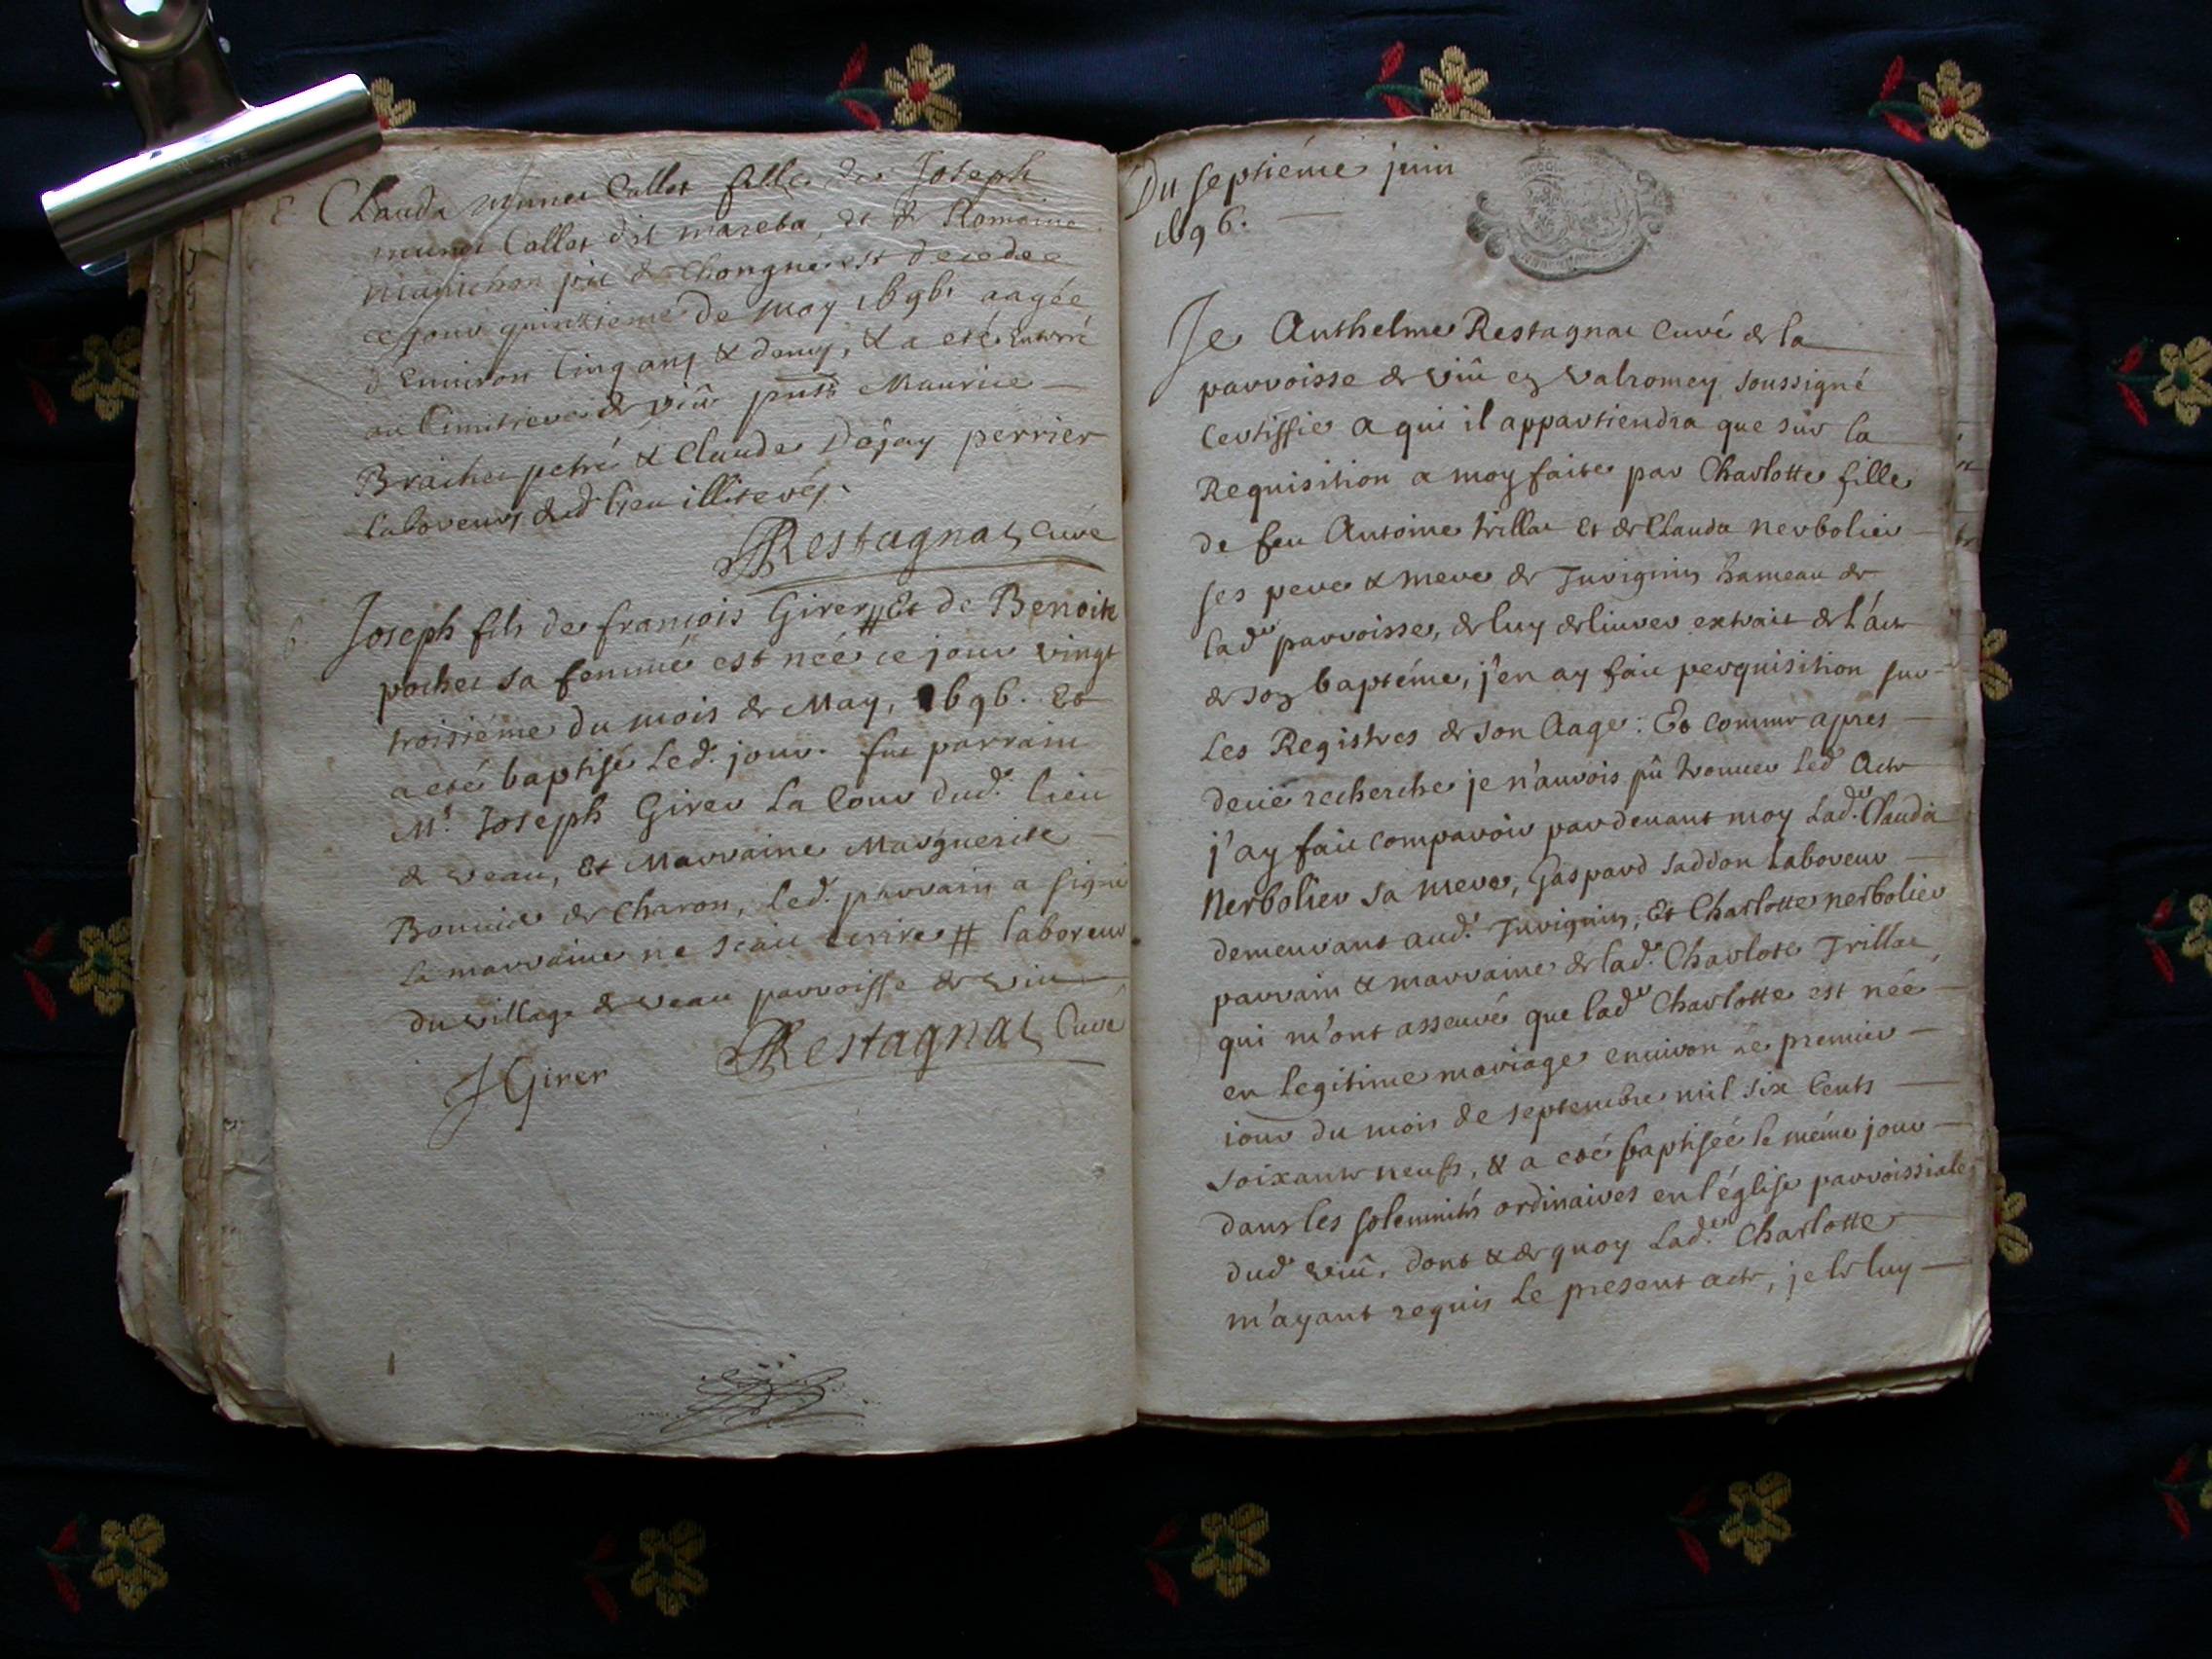 Clauda Callet fille de Joseph
Callet dit mareba, et de Romaine
de Chongne est decedee
ce jour quinzieme de may 1696 aagée
d'Enuiron Cinq ans & demy, & a eté enterré
au Cimitiere de viû pnts Maurice
& Claude Dejay perrier
laboreurs dud lieu illiterés.
Restagnat Curé
Joseph fils de françois Girer # Et de Benoite
pochet sa femme est née ce jour vingt
troisiéme du mois de May, 1696. Et
a eté baptisé led. jour. fut parrain
Mr. Joseph Girer La Cour dud. lieu
de veau, Et Marraine Marguerite
de Charon, led. parrain a signé
la marraine ne scait ecrire # laboreur
du village de veau parroisse de viu
Restagnat Curé
J Girer
Du septiéme juin
1696.
Je Anthelme Restagnat Curé de la
parroisse de viû en valromey soussigné
Certiffie a qui il appartiendra que sur la
Requisition a moy faite par Charlotte fille
de feu Antoine trillat Et de Clauda nerbolier
ses pere & mere de Juvignin hameau de
lade parroisse, de luy deliurer extrait de l'acte
de son baptéme, j'en ay fait perquisition sur
Les Registres de son Aage: Et comme apres
deue recherche je n'aurois pû trouuer led Acte
j'ay fait comparoir pardeuant moy Lade. Clauda
Nerbolier sa mere, Gaspard saddon Laboreur
demeurant aud. Juvignin, Et Charlotte nerbolier
parrain & marraine de lade. Charlote Trillat
qui m'ont asseuré que lade Charlotte est née
en legitime mariage enuiron Le premier
jour du mois de septembre mil six Cents
soixante neuf, & a eté baptisée le méme jour
dans les solemnités ordinaires en l'église parroissiale
dud viû, dont & de quoy Lade. Charlotte
m'ayant requis Le present acte, je le luy